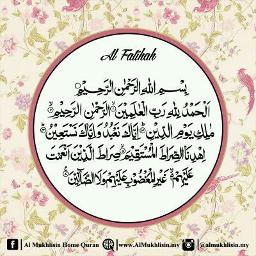 Al Fatihah
بِسْمِ اللهِ الرَّحْمٰنِ الرَّحِيْمِ
اَلْحَمْدُ لِلّٰهِ رَبِّ الْعٰلَمِيْنَ ۝ الرَّحْمٰنِ الرَّحِيْمِ ۝
مٰلِكِ يَوْمِ الدِّيْنِ ۝ اِيَّاكَ نَعْبُدُ وَاِيَّاكَ نَسْتَعِيْنُ ۝
اِهْدِنَا الصِّرَاطَ الْمُسْتَقِيْمَ ۝ صِرَاطَ الَّذِيْنَ اَنْعَمْتَ
عَلَيْهِمْ ۝ غَيْرِ الْمَغْضُوْبِ عَلَيْهِمْ وَلَا الضَّآلِّيْنَ ۝
f Al Mukhlisin Home Quran www.AlMukhlisin.my @almukhlisin.my